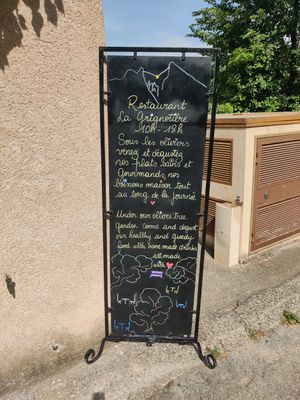 Restaurant
La Grignotière
10H - 18h
Sous les oliviers
venez et dégustez
nos plats sains et
gourmands, nos
boissons maison tout
au long de la journée
Under our olivers tree
garden come and degust
our healthy and greedy
food with home made drinks
all made
with